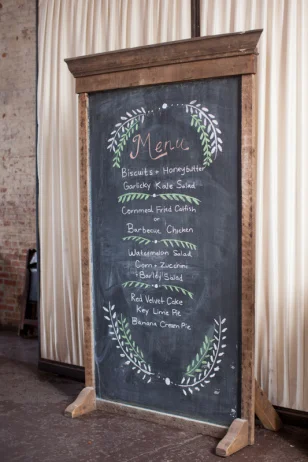 Menu
Biscuits + Honeybutter
Garlicky Kale Salad
Cornmeal Fried Catfish
or
Barbecue Chicken
Watermelon Salad
Corn + Zucchini
+ Barley Salad
Red Velvet Cake
Key Lime Pie
Banana Cream Pie